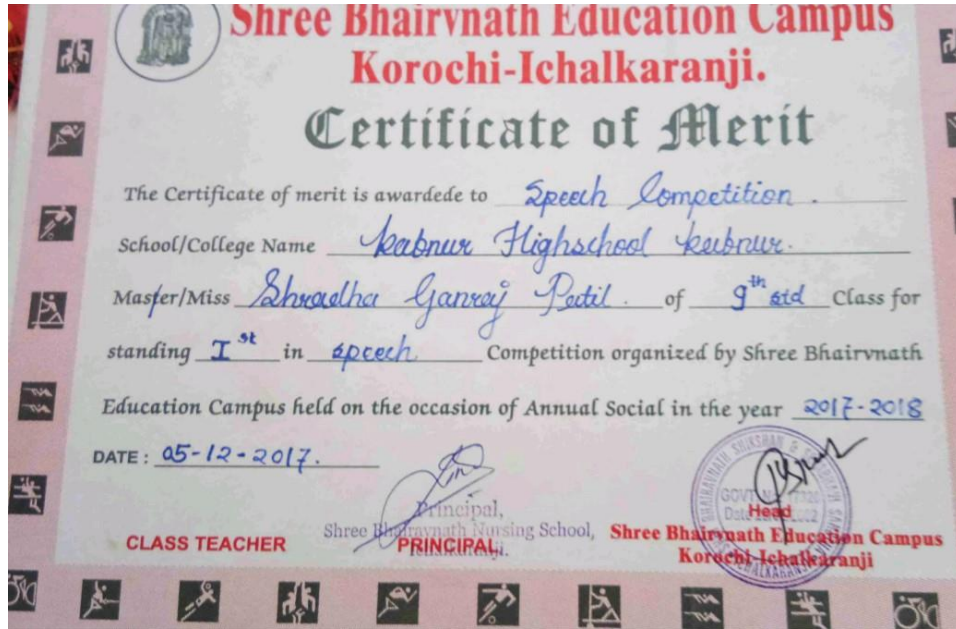 Shree Bhairvnath Education Campus
Korochi-Ichalkaranji.
Certificate of Merit
The Certificate of merit is awardede to Speech Competition.
School/College Name Kabnur Highschool kabnur.
Master/Miss Shradha Ganraj Patil. of 9th std Class for
standing Ist in speech Competition organized by Shree Bhairvnath
Education Campus held on the occasion of Annual Social in the year 2017-2018
DATE: 05-12-2017.
Principal,
Shree Bhairavnath Nursing School,
CLASS TEACHER
PRINCIPAL
Head
Shree Bhairvnath Education Campus
Korochi-Ichalkaranji